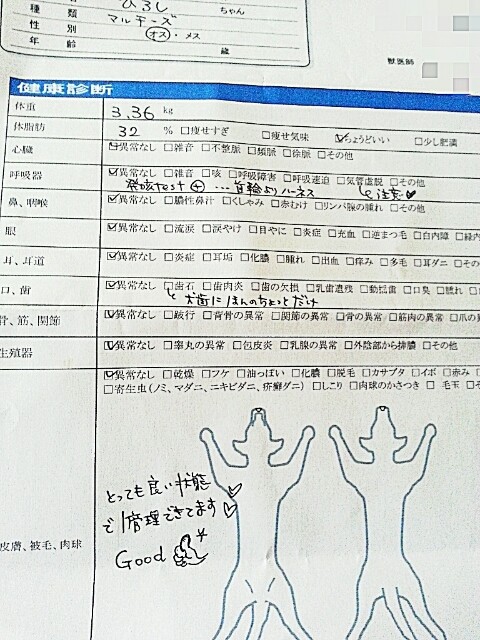 ひろし ちゃん
種類 マルチーズ
性別 オス・メス
年齢 歳
獣医師
健康診断
体重 3.36 kg
体脂肪 32 % □痩せすぎ □痩せ気味 ☑ちょうどいい □少し肥満
心臓 ☑異常なし □雑音 □不整脈 □頻脈 □徐脈 □その他
呼吸器 ☑異常なし □雑音 □咳 □呼吸障害 □呼吸速迫 □気管虚脱 □その他
発咳test ⊕ … 首輪よりハーネス 注意♥
鼻、咽喉 ☑異常なし □膿性鼻汁 □くしゃみ □赤むけ □リンパ腺の腫れ □その他
眼 ☑異常なし □流涙 □涙やけ □目やに □炎症 □充血 □逆まつ毛 □白内障
耳、耳道 ☑異常なし □炎症 □耳垢 □化膿 □腫れ □出血 □痒み □多毛 □耳ダニ □その
口、歯 ☑異常なし □歯石 □歯肉炎 □歯の欠損 □乳歯遺残 □動揺歯 □口臭 □腫れ
犬歯にほんのちょっとだけ
骨、筋、関節 ☑異常なし □跛行 □背骨の異常 □関節の異常 □骨の異常 □筋肉の異常 □爪の
生殖器 ☑異常なし □睾丸の異常 □包皮炎 □乳腺の異常 □外陰部から排膿 □その他
☑異常なし □乾燥 □フケ □油っぽい □化膿 □脱毛 □カサブタ □イボ □赤み
□寄生虫(ノミ、マダニ、ニキビダニ、疥癬ダニ) □しこり □肉球のかさつき □毛玉
とっても良い状態
で管理できてます♡
Good
皮膚、被毛、肉球